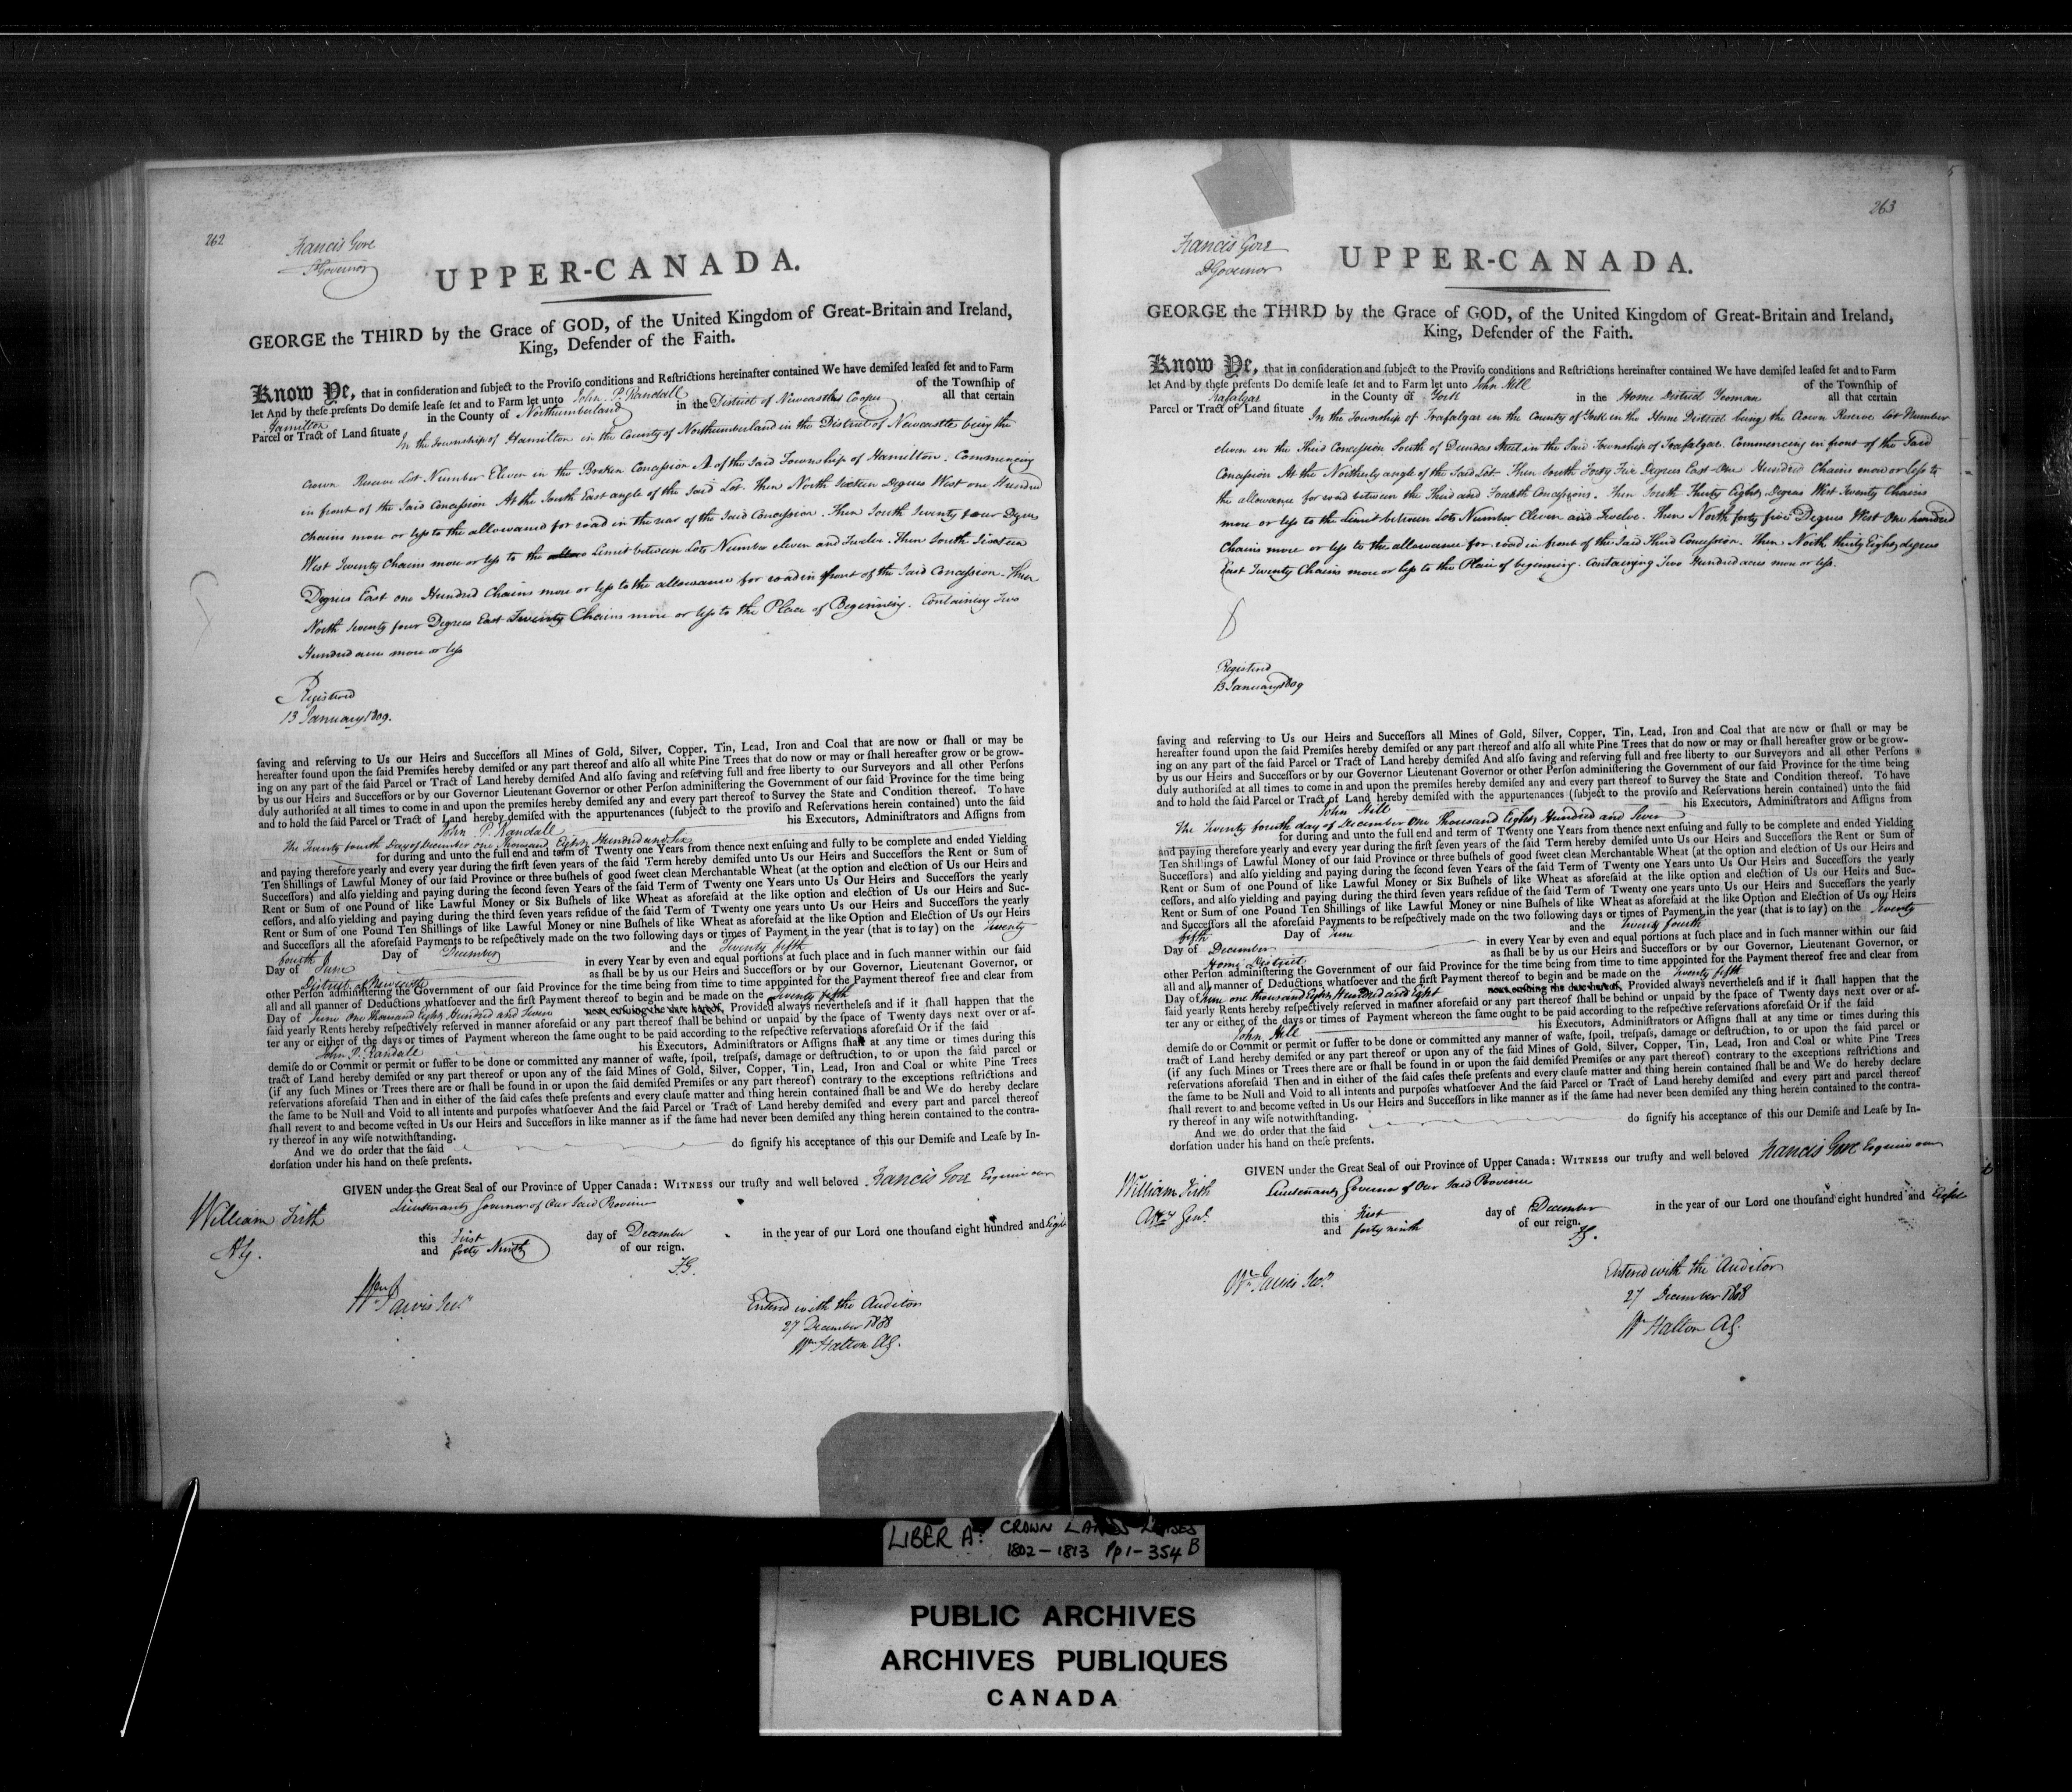 262
Francis Gore
Lt Governor
UPPER-CANADA.
GEORGE the THIRD by the Grace of GOD, of the United Kingdom of Great-Britain and Ireland,
King, Defender of the Faith.
Know Ye, that in conſideration and subject to the Proviſo conditions and Reſtrictions hereinafter contained We have demiſed leaſed ſet and to Farm
let And by theſe preſents Do demiſe leaſe ſet and to Farm let unto John P. Randall of the Townſhip of
Hamilton in the County of Northumberland in the District of Newcastle Cooper all that certain
Parcel or Tract of Land ſituate In the Township of Hamilton in the County of Northumberland in the District of Newcastle being the
Crown Reserve Lot Number Eleven in the Broken Concession A of the Said Township of Hamilton. Commencing
in front of the Said Concession At the South East angle of the Said Lot. Then North Sixteen Degrees West one Hundred
Chains more or less to the allowance for road in the rear of the Said Concession. Then South Seventy four Degrees
West Twenty Chains more or less to the Limit between Lots Number eleven and Twelve. Then South Sixteen
Degrees East one Hundred Chains more or less to the allowance for road in front of the Said Concession. Then
North Seventy four Degrees East Twenty Chains more or less to the Place of Beginning. Containing Two
Hundred acres more or less
Registered
13 January 1809.
ſaving and reſerving to Us our Heirs and Succeſſors all Mines of Gold, Silver, Copper, Tin, Lead, Iron and Coal that are now or ſhall or may be
hereafter found upon the ſaid Premiſes hereby demiſed or any part thereof and alſo all white Pine Trees that do now or may or ſhall hereafter grow or be grow-
ing on any part of the ſaid Parcel or Tract of Land hereby demiſed And alſo ſaving and reſerving full and free liberty to our Surveyors and all other Perſons
by us our Heirs and Succeſſors or by our Governor Lieutenant Governor or other Perſon adminiſtering the Government of our ſaid Province for the time being
duly authoriſed at all times to come in and upon the premiſes hereby demiſed any and every part thereof to Survey the State and Condition thereof. To have
and to hold the ſaid Parcel or Tract of Land hereby demiſed with the appurtenances (ſubject to the proviſo and Reſervations herein contained) unto the ſaid
John P. Randall his Executors, Adminiſtrators and Aſſigns from
The Twenty fourth Day of December one Thousand Eight Hundred and Six
for during and unto the full end and term of Twenty one Years from thence next enſuing and fully to be complete and ended Yielding
and paying therefore yearly and every year during the firſt ſeven years of the ſaid Term hereby demiſed unto Us our Heirs and Succeſſors the Rent or Sum of
Ten Shillings of Lawful Money of our ſaid Province or three buſhels of good ſweet clean Merchantable Wheat (at the option and election of Us our Heirs and
Succeſſors) and alſo yielding and paying during the ſecond ſeven Years of the ſaid Term of Twenty one Years unto Us Our Heirs and Succeſſors the yearly
Rent or Sum of one Pound of like Lawful Money or Six Buſhels of like Wheat as aforeſaid at the like option and election of Us our Heirs and Suc-
ceſſors, and alſo yielding and paying during the third ſeven years reſidue of the ſaid Term of Twenty one years unto Us our Heirs and Succeſſors the yearly
Rent or Sum of one Pound Ten Shillings of like Lawful Money or nine Buſhels of like Wheat as aforeſaid at the like Option and Election of Us our Heirs
and Succeſſors all the aforeſaid Payments to be reſpectively made on the two following days or times of Payment in the year (that is to ſay) on the Twenty
fourth Day of December and the Twenty fifth
Day of June in every Year by even and equal portions at ſuch place and in ſuch manner within our ſaid
District of Newcastle as ſhall be by us our Heirs and Succeſſors or by our Governor, Lieutenant Governor, or
other Perſon adminiſtering the Government of our ſaid Province for the time being from time to time appointed for the Payment thereof free and clear from
all and all manner of Deductions whatſoever and the firſt Payment thereof to begin and be made on the Twenty fifth
Day of June One thousand Eight Hundred and Seven next enſuing the date hereof, Provided always nevertheleſs and if it ſhall happen that the
ſaid yearly Rents hereby reſpectively reſerved in manner aforeſaid or any part thereof ſhall be behind or unpaid by the ſpace of Twenty days next over or af-
ter any or either of the days or times of Payment whereon the ſame ought to be paid according to the reſpective reſervations aforeſaid Or if the ſaid
John P. Randall his Executors, Adminiſtrators or Aſſigns ſhall at any time or times during this
demiſe do or Commit or permit or ſuffer to be done or committed any manner of waſte, ſpoil, treſpaſs, damage or deſtruction, to or upon the ſaid parcel or
tract of Land hereby demiſed or any part thereof or upon any of the ſaid Mines of Gold, Silver, Copper, Tin, Lead, Iron and Coal or white Pine Trees
(if any ſuch Mines or Trees there are or ſhall be found in or upon the ſaid demiſed Premiſes or any part thereof) contrary to the exceptions reſtrictions and
reſervations aforeſaid Then and in either of the ſaid caſes theſe preſents and every clauſe matter and thing herein contained ſhall be and We do hereby declare
the ſame to be Null and Void to all intents and purpoſes whatſoever And the ſaid Parcel or Tract of Land hereby demiſed and every part and parcel thereof
ſhall revert to and become veſted in Us our Heirs and Succeſſors in like manner as if the ſame had never been demiſed any thing herein contained to the contra-
ry thereof in any wiſe notwithſtanding.
And we do order that the ſaid do ſignify his acceptance of this our Demiſe and Leaſe by In-
dorſation under his hand on theſe preſents.
GIVEN under the Great Seal of our Province of Upper Canada: WITNESS our truſty and well beloved Francis Gore Esquire our
Lieutenant Governor of Our Said Province
this First day of December in the year of our Lord one thouſand eight hundred and Eight
and forty Ninth of our reign.
F.G.
William Firth
A.G.
Wm Jarvis Secy
Entered with the Auditor
27 December 1808
Wm Halton AG.
263
Francis Gore
Lt Governor
UPPER-CANADA.
GEORGE the THIRD by the Grace of GOD, of the United Kingdom of Great-Britain and Ireland,
King, Defender of the Faith.
Know Ye, that in conſideration and ſubject to the Proviſo conditions and Reſtrictions hereinafter contained We have demiſed leaſed ſet and to Farm
let And by theſe preſents Do demiſe leaſe ſet and to Farm let unto John Hill of the Townſhip of
Trafalgar in the County of York in the Home District Yeoman all that certain
Parcel or Tract of Land ſituate In the Township of Trafalgar in the County of York in the Home District being the Crown Reserve Lot Number
eleven in the Third Concession South of Dundas Street in the Said Township of Trafalgar. Commencing in front of the Said
Concession At the Northerly angle of the Said Lot. Then South Forty Five Degrees East One Hundred Chains more or less to
the allowance for road between the Third and Fourth Concessions. Then South Thirty Eight Degrees West Twenty Chains
more or less to the Limit between Lots Number Eleven and Twelve. Then North forty five Degrees West One hundred
Chains more or less to the allowance for road in front of the Said Third Concession. Then North thirty Eight degrees
East Twenty Chains more or less to the Place of beginning. Containing Two Hundred acres more or less.
Registered
13 January 1809
ſaving and reſerving to Us our Heirs and Succeſſors all Mines of Gold, Silver, Copper, Tin, Lead, Iron and Coal that are now or ſhall or may be
hereafter found upon the ſaid Premiſes hereby demiſed or any part thereof and alſo all white Pine Trees that do now or may or ſhall hereafter grow or be grow-
ing on any part of the ſaid Parcel or Tract of Land hereby demiſed And alſo ſaving and reſerving full and free liberty to our Surveyors and all other Perſons
by us our Heirs and Succeſſors or by our Governor Lieutenant Governor or other Perſon adminiſtering the Government of our ſaid Province for the time being
duly authoriſed at all times to come in and upon the premiſes hereby demiſed any and every part thereof to Survey the State and Condition thereof. To have
and to hold the ſaid Parcel or Tract of Land hereby demiſed with the appurtenances (ſubject to the proviſo and Reſervations herein contained) unto the ſaid
John Hill his Executors, Adminiſtrators and Aſſigns from
The Twenty fourth day of December One thousand Eight Hundred and Seven
for during and unto the full end and term of Twenty one Years from thence next enſuing and fully to be complete and ended Yielding
and paying therefore yearly and every year during the firſt ſeven years of the ſaid Term hereby demiſed unto Us our Heirs and Succeſſors the Rent or Sum of
Ten Shillings of Lawful Money of our ſaid Province or three buſhels of good ſweet clean Merchantable Wheat (at the option and election of Us our Heirs and
Succeſſors) and alſo yielding and paying during the ſecond ſeven Years of the ſaid Term of Twenty one Years unto Us Our Heirs and Succeſſors the yearly
Rent or Sum of one Pound of like Lawful Money or Six Buſhels of like Wheat as aforeſaid at the like option and election of Us our Heirs and Suc-
ceſſors, and alſo yielding and paying during the third ſeven years reſidue of the ſaid Term of Twenty one years unto Us our Heirs and Succeſſors the yearly
Rent or Sum of one Pound Ten Shillings of like Lawful Money or nine Buſhels of like Wheat as aforeſaid at the like Option and Election of Us our Heirs
and Succeſſors all the aforeſaid Payments to be reſpectively made on the two following days or times of Payment in the year (that is to ſay) on the Twenty
fifth Day of June and the Twenty fourth
Day of December in every Year by even and equal portions at ſuch place and in ſuch manner within our ſaid
Home District as ſhall be by us our Heirs and Succeſſors or by our Governor, Lieutenant Governor, or
other Perſon adminiſtering the Government of our ſaid Province for the time being from time to time appointed for the Payment thereof free and clear from
all and all manner of Deductions whatſoever and the firſt Payment thereof to begin and be made on the Twenty fifth
Day of June one thousand Eight Hundred and Eight next enſuing the date hereof, Provided always nevertheleſs and if it ſhall happen that the
ſaid yearly Rents hereby reſpectively reſerved in manner aforeſaid or any part thereof ſhall be behind or unpaid by the ſpace of Twenty days next over or af-
ter any or either of the days or times of Payment whereon the ſame ought to be paid according to the reſpective reſervations aforeſaid Or if the ſaid
John Hill his Executors, Adminiſtrators or Aſſigns ſhall at any time or times during this
demiſe do or Commit or permit or ſuffer to be done or committed any manner of waſte, ſpoil, treſpaſs, damage or deſtruction, to or upon the ſaid parcel or
tract of Land hereby demiſed or any part thereof or upon any of the ſaid Mines of Gold, Silver, Copper, Tin, Lead, Iron and Coal or white Pine Trees
(if any ſuch Mines or Trees there are or ſhall be found in or upon the ſaid demiſed Premiſes or any part thereof) contrary to the exceptions reſtrictions and
reſervations aforeſaid Then and in either of the ſaid caſes theſe preſents and every clauſe matter and thing herein contained ſhall be and We do hereby declare
the ſame to be Null and Void to all intents and purpoſes whatſoever And the ſaid Parcel or Tract of Land hereby demiſed and every part and parcel thereof
ſhall revert to and become veſted in Us our Heirs and Succeſſors in like manner as if the ſame had never been demiſed any thing herein contained to the contra-
ry thereof in any wiſe notwithſtanding.
And we do order that the ſaid do ſignify his acceptance of this our Demiſe and Leaſe by In-
dorſation under his hand on theſe preſents.
GIVEN under the Great Seal of our Province of Upper Canada: WITNESS our truſty and well beloved Francis Gore Esquire our
Lieutenant Governor of Our Said Province
this First day of December in the year of our Lord one thouſand eight hundred and Eight
and forty ninth of our reign.
F.G.
William Firth
Atty Genl.
Wm Jarvis Secy.
Entered with the Auditor
27 December 1808
Wm Halton AG.
LIBER A: CROWN LANDS LEASES
1802-1813 Pp 1-354 B
PUBLIC ARCHIVES
ARCHIVES PUBLIQUES
CANADA